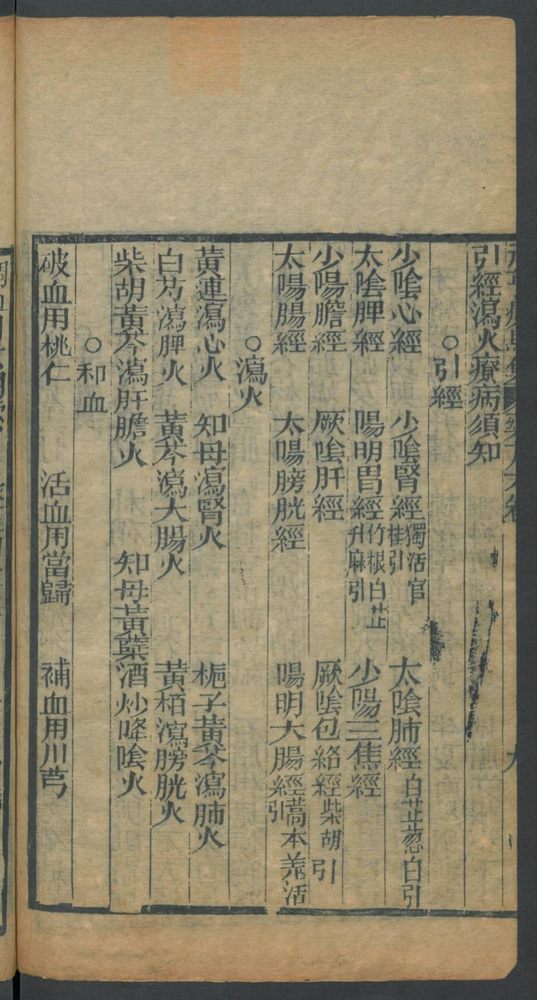 引經瀉火療病須知
○引經
少陰心經 少陰腎經獨活官桂引 太陰肺經白芷葱白引
太陰脾經 陽明胃經竹根白芷升麻引 少陽三焦經
少陽膽經 厥陰肝經 厥陰包絡經柴胡引
太陽腸經 太陽膀胱經 陽明大腸經藁本羗活引
○瀉火
黃連瀉心火 知母瀉腎火 梔子黃芩瀉肺火
白芍瀉脾火 黃芩瀉大腸火 黃栢瀉膀胱火
柴胡黃芩瀉肝膽火 知母黃蘗酒炒降陰火
○和血
破血用桃仁 活血用當歸 補血用川芎